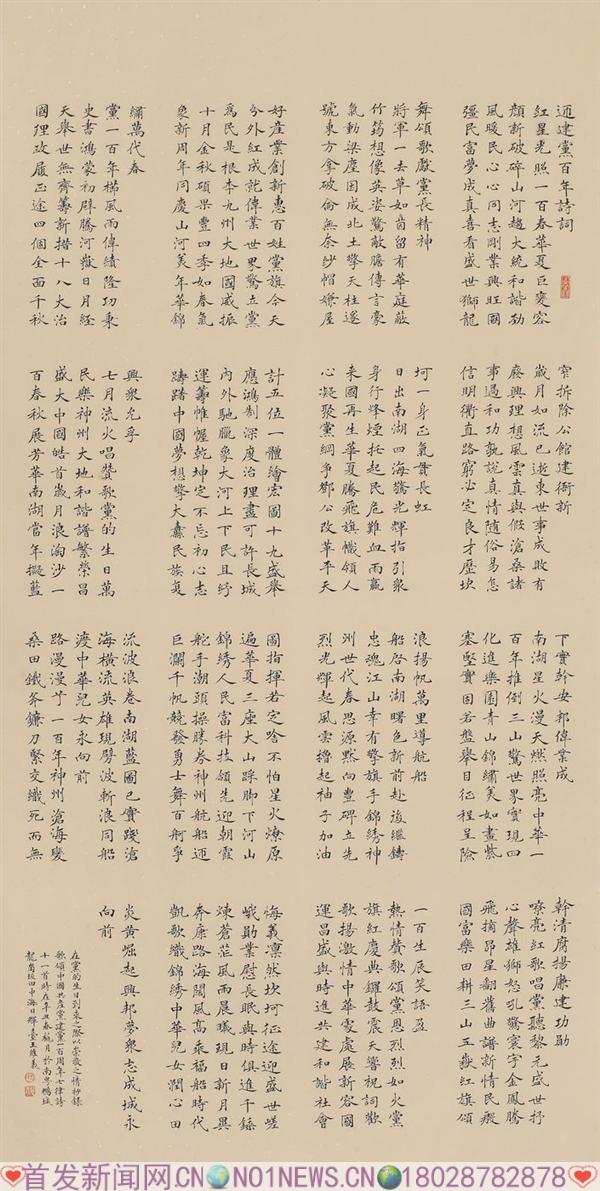 迎建黨百年詩詞
紅星光照一百春華夏巨變容
顏新破碎山河趨大統和諧劲
風暖民心心同志剛業興旺國
彊民富夢成真喜看盛世獅龍
舞頌歌獻黨長精神
將軍一去草如茵留有華庭蔽
竹筠想像英姿驚敵膽傳言豪
氣動梁塵因成北土擎天柱遂
號東方拿破侖無奈紗帽嫌屋
窄拆除公館建衙新
歲月如流已逝東世事成敗有
廢興理想風雲真與假滄桑諸
事過和功孰說真情随俗易怎
信明衢直路窮必定良才歷坎
坷一身正氣貫長虹
日出南湖四海驚光輝指引衆
身行烽煙托起民危難血雨贏
来國再生華夏騰飛旗幟領人
心凝聚黨綱爭鄧公改革平天
下實幹安邦偉業成
南湖星火漫天燃照亮中華一
百年推倒三山驚世界實現四
化進樂園青山錦繡美如畫紫
塞堅實固若盤舉目征程呈險
浪揚帆萬里導航船
船啓南湖曙色新前赴後繼鑄
忠魂江山幸有擎旗手錦綉神
州世代春思源默向豐碑立先
烈光輝起風雲擼起袖子加油
幹清腐揚廉建功勛
嘹亮紅歌唱黨聽黎元盛世抒
心聲雄獅怒吼驚寰宇金鳳騰
飛摘昴星翻舊曲譜新情民殷
國富樂田耕三山五嶽紅旗頌
一百生辰笑語盈
熱情贊歌頌黨恩烈烈如火黨
旗紅慶典鑼鼓震天響祝詞歡
歌揚激情中華處處展新容國
運昌盛與時進共建和諧社會
好產業創新惠百姓黨旗今天
分外紅成就偉業世界驚立黨
為民是根本九州大地國威振
十月金秋碩果豐四季如春氣
象新周年同慶山河美年華錦
繡萬代春
黨一百年櫛風雨偉績隆功秉
史書鴻蒙初闢騰河嶽日月經
天舉世無齊籌新措十八大治
國理政履正途四個全面千秋
計五位一體繪宏圖十九盛舉
應鴻制深度治理盡可許長城
內外馳臘象大河上下民且紓
運籌帷幄乾坤定不忘初心志
躊躇中國夢想擎大纛民族复
興衆允孚
七月流火唱贊歌黨的生日萬
民樂神州大地和諧譜繁榮昌
盛大中國皓首歲月浪淘沙一
百春秋展芳華南湖當年擬藍
圖指揮若定啥不怕星火燎原
遍華夏三座大山踩脚下河山
錦綉人民富科技領先迎朝霞
舵手潮頭操勝券神州航船迎
巨瀾千帆競發勇士舞百舸爭
流波浪卷南湖藍圖已實踐滄
海橫流英雄現劈波斬浪同船
渡中華兒女永向前
路漫漫兮一百年神州滄海變
桑田鐵斧鐮刀緊交織死而無
悔義凛然坎坷征途迎盛世嵯
峨勛業慰長眠與時俱進千錘
煉蒼茫風雨晨曦現日新月異
奔康路海闊風高乘福船時代
凱歌織錦綉中華兒女潤心田
炎黄崛起興邦夢衆志成城永
向前
在黨的生日到来之際以崇敬之情抄錄
歌頌中國共産黨建黨一百周年七律詩
十一首時在辛丑春杭月於南粤鵬城
龍崗坂田中海日輝臺王維義
首发新闻网.CN NO1NEWS.CN 18028782878